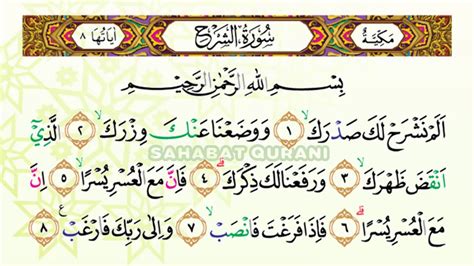 مَكِّيَّةٌ سُورَةُ الشَّرْحِ اٰيَاتُهَا ٨
بِسْمِ اللّٰهِ الرَّحْمٰنِ الرَّحِيْمِ
اَلَمْ نَشْرَحْ لَكَ صَدْرَكَۙ ١ وَوَضَعْنَا عَنْكَ وِزْرَكَۙ ٢ الَّذِيْٓ
SAHABAT QURANI
اَنْقَضَ ظَهْرَكَۙ ٣ وَرَفَعْنَا لَكَ ذِكْرَكَۗ ٤ فَاِنَّ مَعَ الْعُسْرِ يُسْرًاۙ ٥ اِنَّ
مَعَ الْعُسْرِ يُسْرًاۗ ٦ فَاِذَا فَرَغْتَ فَانْصَبْۙ ٧ وَاِلٰى رَبِّكَ فَارْغَبْ ࣖ ٨